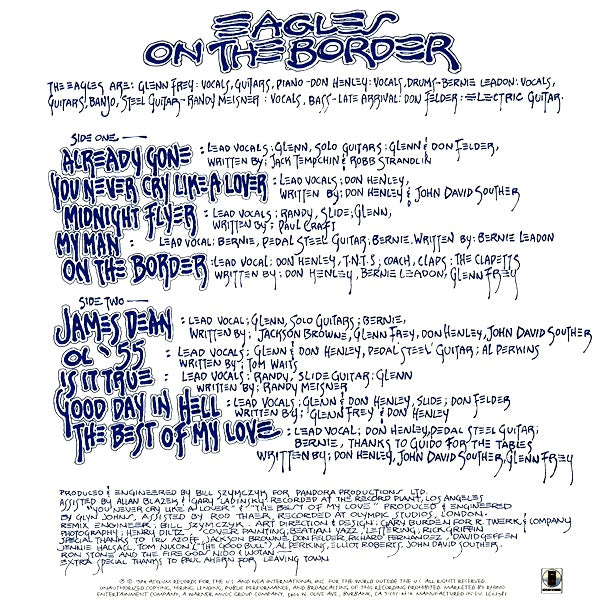 EAGLES
ON THE BORDER
THE EAGLES ARE: GLENN FREY: VOCALS, GUITARS, PIANO - DON HENLEY: VOCALS, DRUMS - BERNIE LEADON: VOCALS,
GUITARS, BANJO, STEEL GUITAR - RANDY MEISNER: VOCALS, BASS - LATE ARRIVAL: DON FELDER: ELECTRIC GUITAR.
SIDE ONE —
ALREADY GONE : LEAD VOCALS; GLENN, SOLO GUITARS; GLENN & DON FELDER,
WRITTEN BY; JACK TEMPCHIN & ROBB STRANDLIN
YOU NEVER CRY LIKE A LOVER : LEAD VOCALS; DON HENLEY,
WRITTEN BY; DON HENLEY & JOHN DAVID SOUTHER
MIDNIGHT FLYER : LEAD VOCALS; RANDY, SLIDE; GLENN,
WRITTEN BY; PAUL CRAFT
MY MAN : LEAD VOCAL; BERNIE, PEDAL STEEL GUITAR; BERNIE. WRITTEN BY; BERNIE LEADON
ON THE BORDER : LEAD VOCAL; DON HENLEY, T.N.T.S; COACH, CLAPS; THE CLAPETTS
WRITTEN BY; DON HENLEY, BERNIE LEADON, GLENN FREY
SIDE TWO —
JAMES DEAN : LEAD VOCAL; GLENN, SOLO GUITARS; BERNIE,
WRITTEN BY; JACKSON BROWNE, GLENN FREY, DON HENLEY, JOHN DAVID SOUTHER
OL '55 : LEAD VOCALS; GLENN & DON HENLEY, PEDAL STEEL GUITAR; AL PERKINS
WRITTEN BY; TOM WAITS
IS IT TRUE : LEAD VOCALS; RANDY, SLIDE GUITAR; GLENN
WRITTEN BY; RANDY MEISNER
GOOD DAY IN HELL : LEAD VOCALS; GLENN & DON HENLEY, SLIDE; DON FELDER
WRITTEN BY; GLENN FREY & DON HENLEY
THE BEST OF MY LOVE : LEAD VOCAL; DON HENLEY, PEDAL STEEL GUITAR;
BERNIE, THANKS TO GUIDO FOR THE TABLES
WRITTEN BY; DON HENLEY, JOHN DAVID SOUTHER, GLENN FREY
PRODUCED & ENGINEERED BY BILL SZYMCZYK FOR PANDORA PRODUCTIONS LTD.
ASSISTED BY ALLAN BLAZEK & GARY LADINSKY RECORDED AT THE RECORD PLANT, LOS ANGELES
"YOU NEVER CRY LIKE A LOVER" & "THE BEST OF MY LOVE" PRODUCED & ENGINEERED
BY GLYN JOHNS, ASSISTED BY ROD THAER, RECORDED AT OLYMPIC STUDIOS, LONDON.
REMIX ENGINEER: BILL SZYMCZYK. ART DIRECTION & DESIGN: GARY BURDEN FOR R. TWERK & COMPANY
PHOTOGRAPHY: HENRY DILTZ COVER PAINTING: BEATIAN YAZZ LETTERING: RICK GRIFFIN
SPECIAL THANKS TO: IRV AZOFF, JACKSON BROWNE, DON FELDER, RICHARD FERNANDEZ, DAVID GEFFEN
JENNIE HALSALL, TOM NIXON ("THE GOOD BULL"), AL PERKINS, ELLIOT ROBERTS, JOHN DAVID SOUTHER,
RON STONE AND THE FIRE GODS, HILDO & WOTAN —
EXTRA SPECIAL THANKS TO PAUL AHERN FOR LEAVING TOWN
© 1974 ASYLUM RECORDS FOR THE U.S. AND WEA INTERNATIONAL INC. FOR THE WORLD OUTSIDE THE U.S. ALL RIGHTS RESERVED.
UNAUTHORIZED COPYING, HIRING, LENDING, PUBLIC PERFORMANCE, AND BROADCASTING OF THIS RECORDING PROHIBITED. MARKETED BY RHINO
ENTERTAINMENT COMPANY, A WARNER MUSIC GROUP COMPANY,